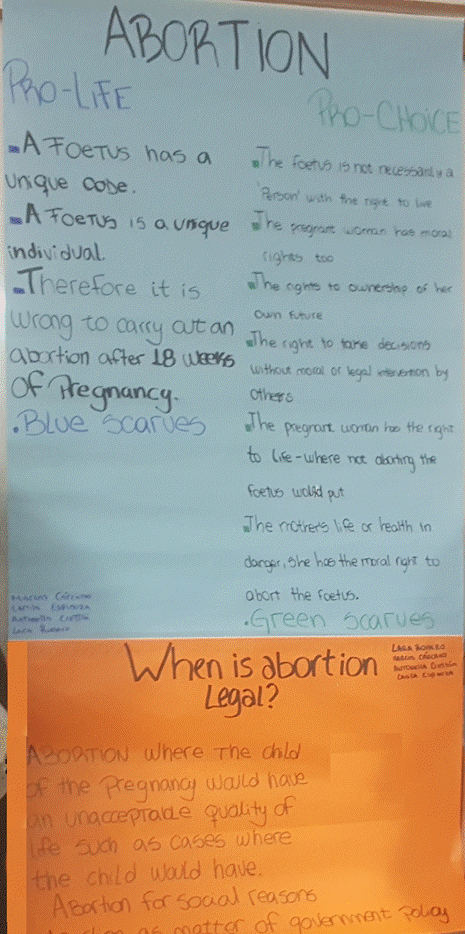 ABORTION
PRO-LIFE
A FOETUS has a
unique code.
A FOETUS is a unique
individual.
Therefore it is
wrong to carry out an
abortion after 18 weeks
OF Pregnancy.
.Blue scarves
PRO-CHOICE
The foetus is not necessarily a
'Person' with the right to live
The pregnant woman has moral
rights too
The rights to ownership of her
own future
The right to take decisions
without moral or legal intervention by
others
The pregnant woman has the right
to life-where not aborting the
foetus would put
The mothers life or health in
danger, she has the moral right to
abort the foetus.
.Green scarves
When is abortion
Legal?
ABORTION where The child
of the pregnancy would have
an unacceptable quality of
life such as cases where
the child would have.
Abortion for social reasons
as matter of government policy